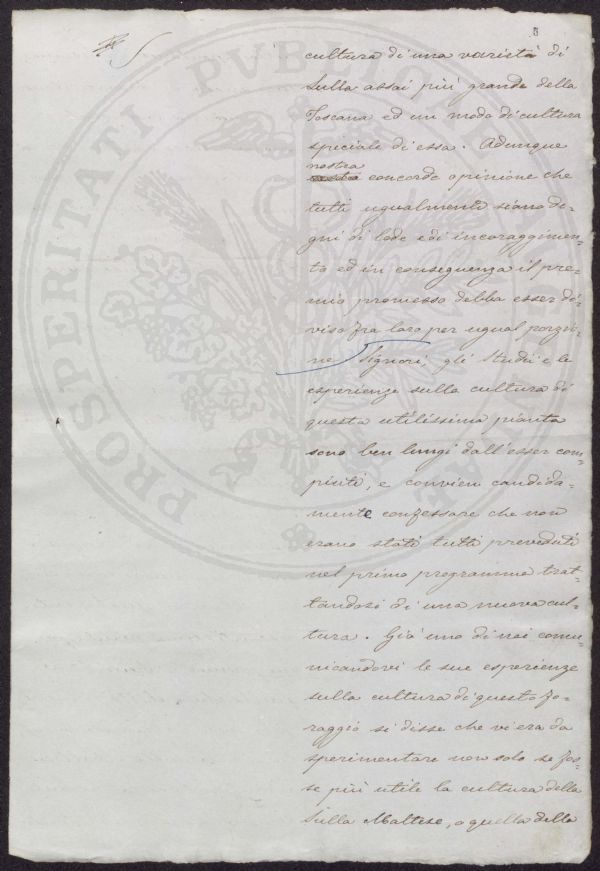 cultura di una varietà di
Sulla assai più grande della
Toscana ed un modo di cultura
speciale di essa. Adunque
nostra
concorde opinione che
tutti ugualmente siano de-
gni di lode e di incoraggimen-
to ed in conseguenza il pre-
mio promesso debba esser di-
viso fra loro per ugual porzio-
ne. Signori, gli Studii e le
esperienze sulla cultura di
questa utilissima pianta
sono ben lungi dall'esser com-
piuti, e convien candida-
mente confessare che non
erano stati tutti preveduti
nel primo programma trat-
tandosi di una nuova cul-
tura. Già uno di noi comu-
nicandovi le sue esperienze
sulla cultura di questo fo-
raggio si disse che vi era da
sperimentare non solo se fos-
se più utile la cultura della
Sulla Maltese, o quella della
PROSPERITATI PUBLICAE AUGENDAE